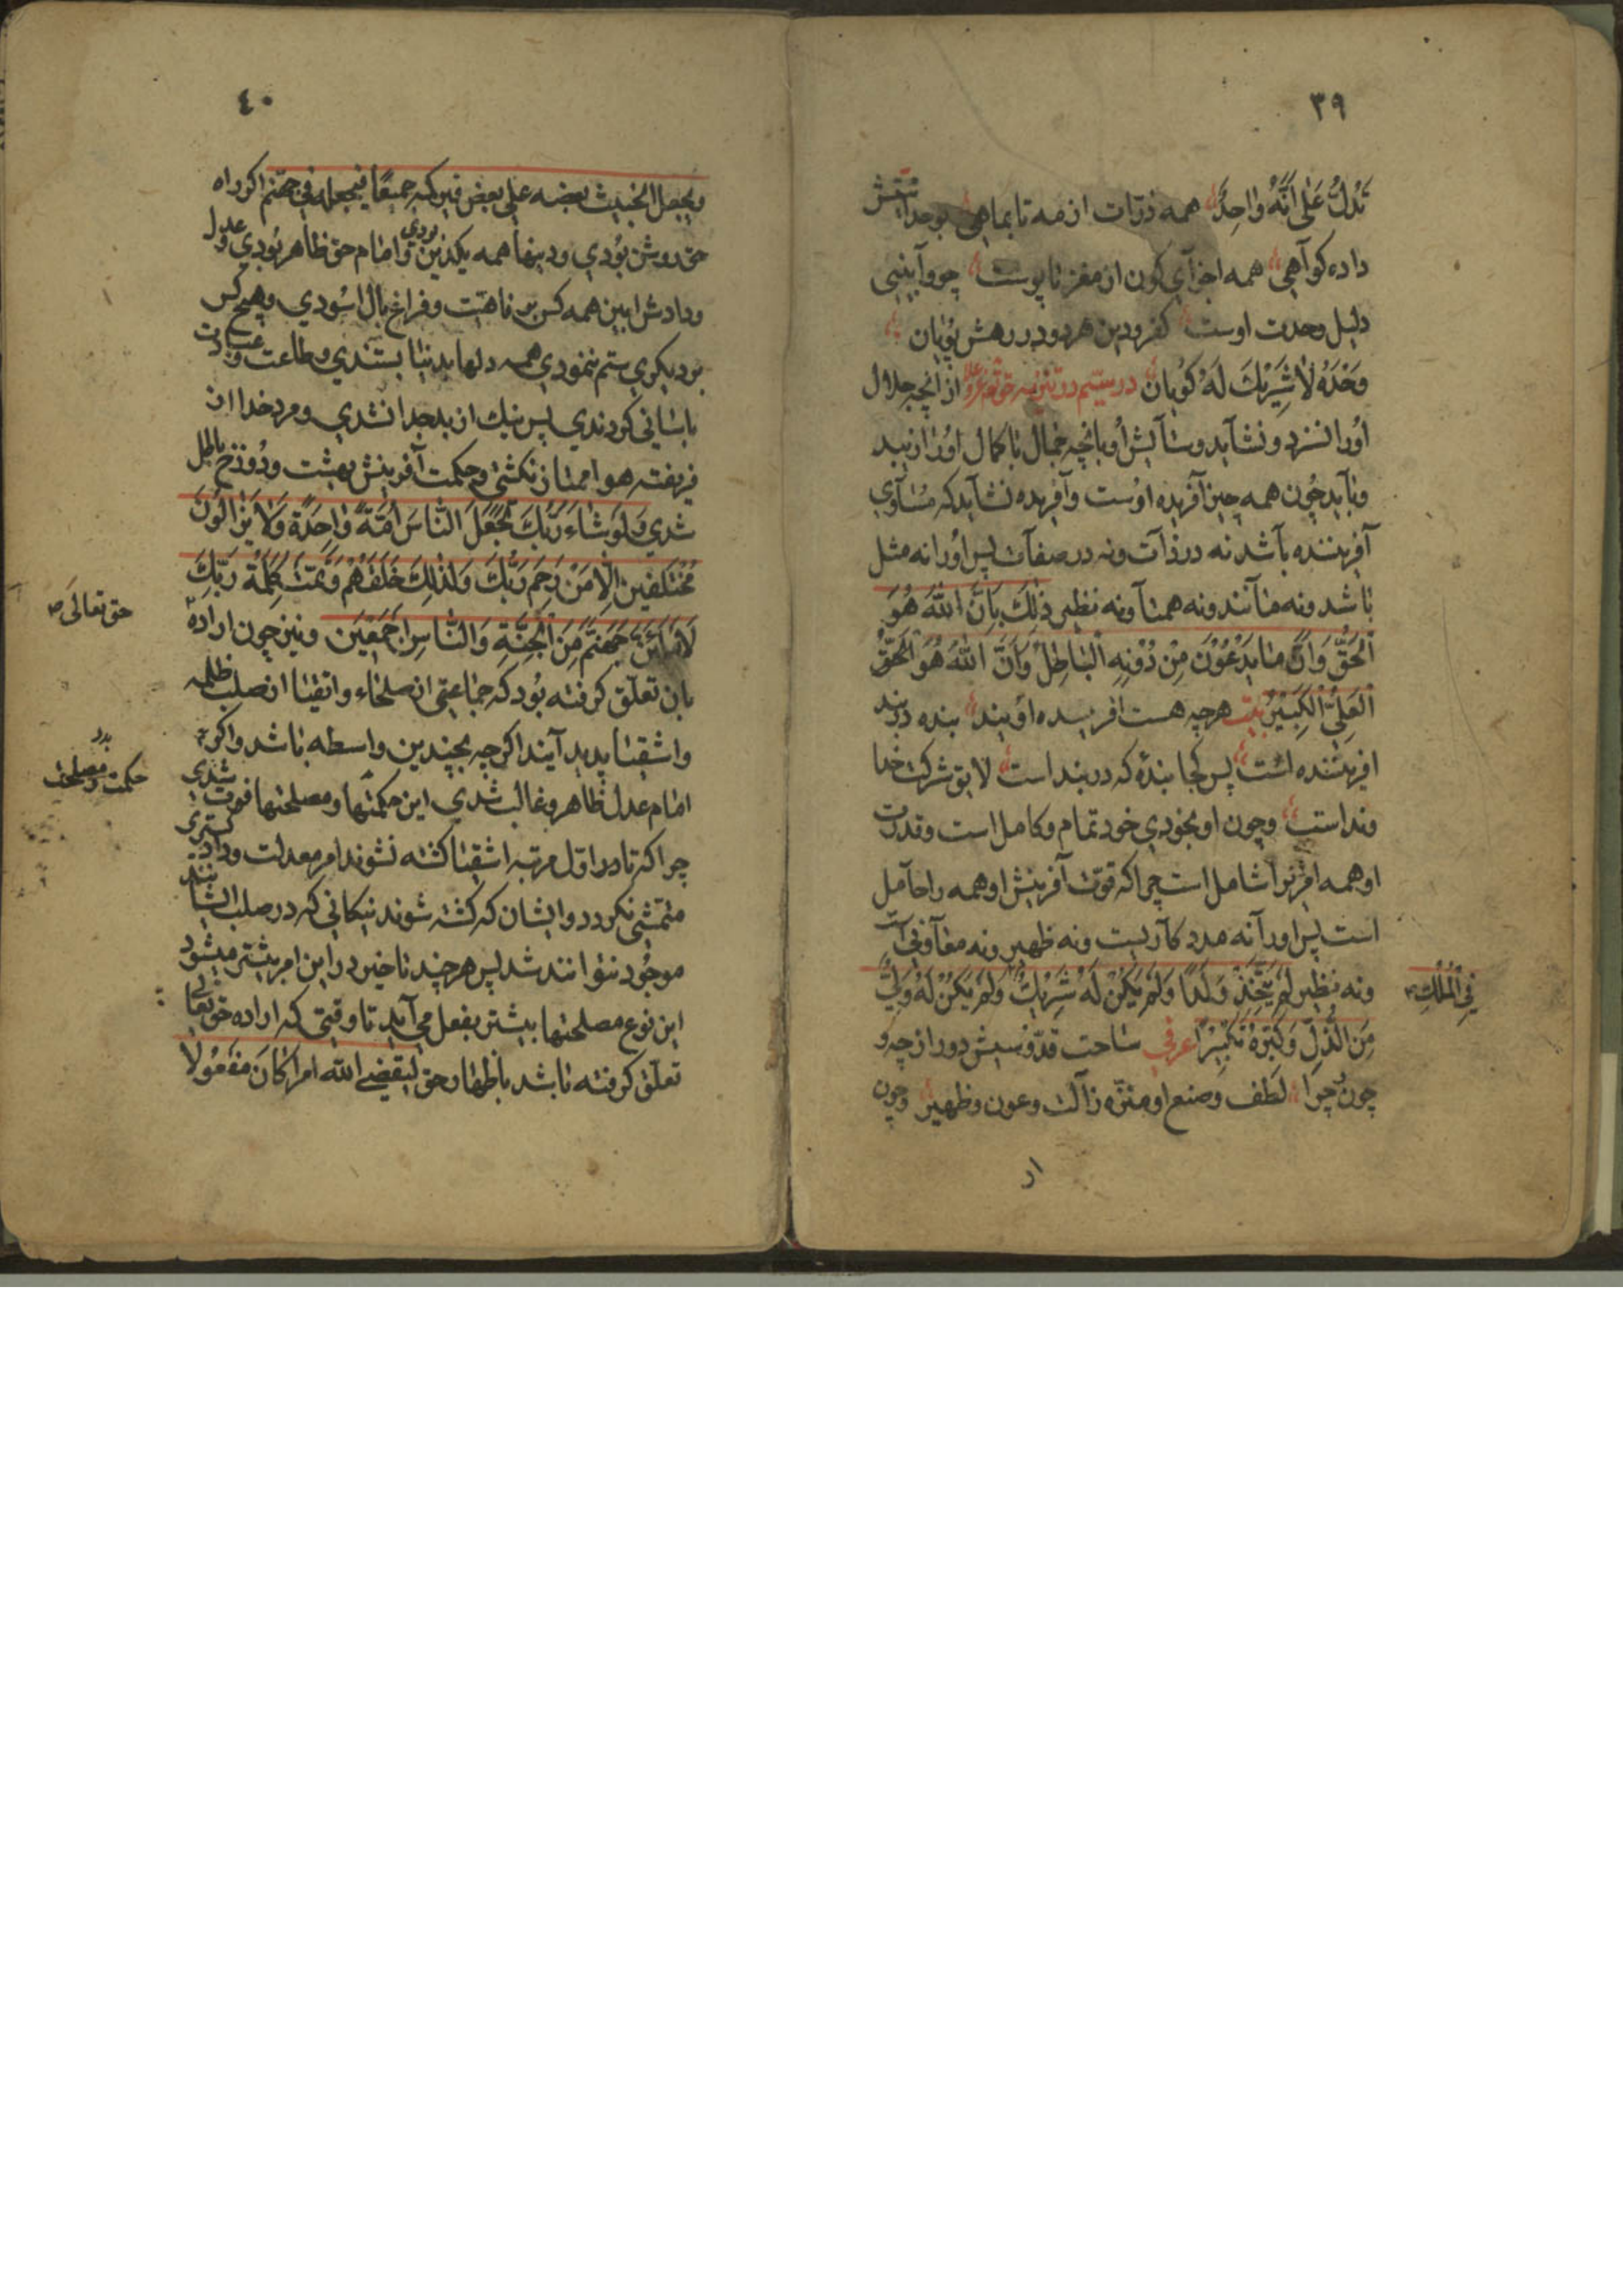 ٣٩
تَدُلُّ عَلٰی اَنَّهُ وٰاحِدٌ همه ذرّات از مه تا بماهی بوحدانیتش
داده کوآهی همه اجزآی کون از مغز تا پوست چو وآبینی
دلیل وحدت اوست کفرودین هردو در رهش پُویان
وَحْدَهُ لٰا شَرِیْكَ لَهُ کُویان در سیّم در تنزیه حق از آنچه جلال
اُورا نسزد و نشآید وستآیش اُو بآنچه جمال با کمال اُورا زیبد
وبآید چُون همه چیز آفریده اوُست وآفریده نشآید که مُسٰآوی
آفریننده بآشد نه در ذآت ونه در صفآت پس اُورا نه مثل
بٰاشد ونه مٰانند ونه همتٰا ونه نظیر ذٰلِكَ بِاَنَّ اللّٰهَ هُوَ
الْحَقُّ وَاَنَّ مٰا یَدْعُوْنَ مِنْ دُوْنِهِ الْبٰاطِلُ وَاَنَّ اللّٰهَ هُوَ الْحَقُّ
الْعَلِیُّ الْکَبِیْرُ بیت هرچه هست افریده اُو بند بنده دربند
افریننده ائست پس کجا بندهٔ که دربند است لایق شرکت خدا
ونداست وچون او بخودی خود تمام وکامل است وقدرت
او همه افرٰنرا شامل است چراکه قوّت آفرینش او همه راحآمل
است پس اورا نه مدد کآریست ونه ظهیر ونه معٰآونی است
ونه نظیر لَمْ یَتَّخِذْ وَلَدًا وَلَمْ یَکُنْ لَهُ شَرِیْكٌ وَلَمْ یَکُنْ لَهُ وَلِیٌّ
فِی الْمُلْكِ
مِنَ الذُّلِّ وَکَبِّرْهُ تَکْبِیْرًا عرفی سٰاحت قدّوُسیش دور از چه و
چون وچرا لُطف وصنع او منزّه زآلت وعون وظهیر وچون
از
٤٠
ویجعل الخبیث بعضه علی بعض فیرکمه جمیعًا فیجعله فی جهنّم اکر راه
حق روشن بُودی ودینها همه یکدین بودی وامٰام حق ظٰاهر بُودی وعدل
ودادش ابین همه کس برفاهیّت وفراغ بال اسُودی وهیچ کس
بر دیکری ستم ننمودی همه دلها بدنیٰا بستندی وطاعت وعبادت
بٰاسٰانی کردندی پس نیك از بد جدا نشدی ومرد خدا از
فریفته هوا ممتٰاز نکشتی وحکمت آفرینش بهشت ودُوزخ باطل
شدی وَلَوْ شٰاءَ رَبُّكَ لَجَعَلَ النّٰاسَ اُمَّةً وٰاحِدَةً وَلٰا یَزٰالُوْنَ
مُخْتَلِفِیْنَ اِلّٰا مَنْ رَحِمَ رَبُّكَ وَلِذٰلِكَ خَلَقَهُمْ وَتَمَّتْ کَلِمَةُ رَبِّكَ
لَاَمْلَئَنَّ جَهَنَّمَ مِنَ الْجِنَّةِ وَالنّٰاسِ اَجْمَعِیْنَ ونیز چون اراده
حق تعالیٰ
بان تعلّق کرفته بُود که جمٰاعتی از صلحٰاء واتقیٰا از صلب ظلمه
واشقیٰا پدید آیند اکرچه بچندین واسطه بٰاشد واکر
امٰام عدل ظٰاهر وغالب شدی این حکمتها ومصلحتها فوت شدی
حکمت ومصلحت
چراکه تا در اوّل مرتبه اشقیٰا کشته نشوند امر معدلت ودادکستری
متمشّی نکردد وایشان که کشته شوند نیکانی که در صلب ایشٰانند
موجُود نتوانند شد پس هرچند تاخیر در این امر بیشتر میشود
این نوع مصلحتها بیشتر بفعل می آید تا وقتی که اراده حق تعٰالی
تعلّق کرفته بٰاشد باظهار حق لیقضی اللّه امرا کٰانَ مَفْعُوْلًا